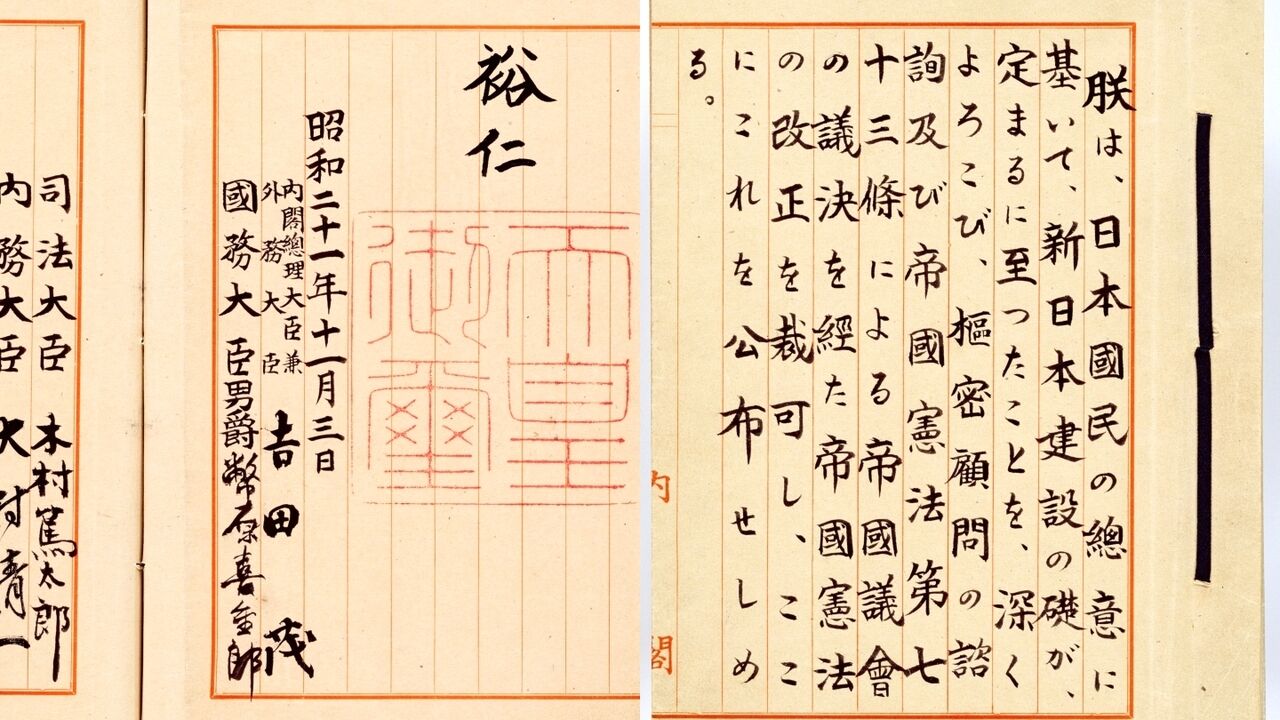 朕は、日本國民の總意に
基いて、新日本建設の礎が、
定まるに至つたことを、深く
よろこび、樞密顧問の諮
詢及び帝國憲法第七
十三條による帝國議會
の議決を經た帝國憲法
の改正を裁可し、ここ
にこれを公布せしめ
る。
内
閣
裕仁
天皇
御璽
昭和二十一年十一月三日
内閣總理大臣兼
外務大臣 吉田茂
國務大臣男爵幣原喜重郎
司法大臣 木村篤太郎
内務大臣 大村清一